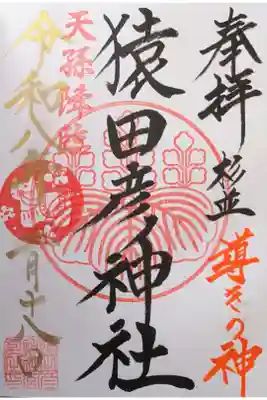 奉拝
杉並
導きの神
猿田彦神社
天孫降臨
令和八年 月十八日